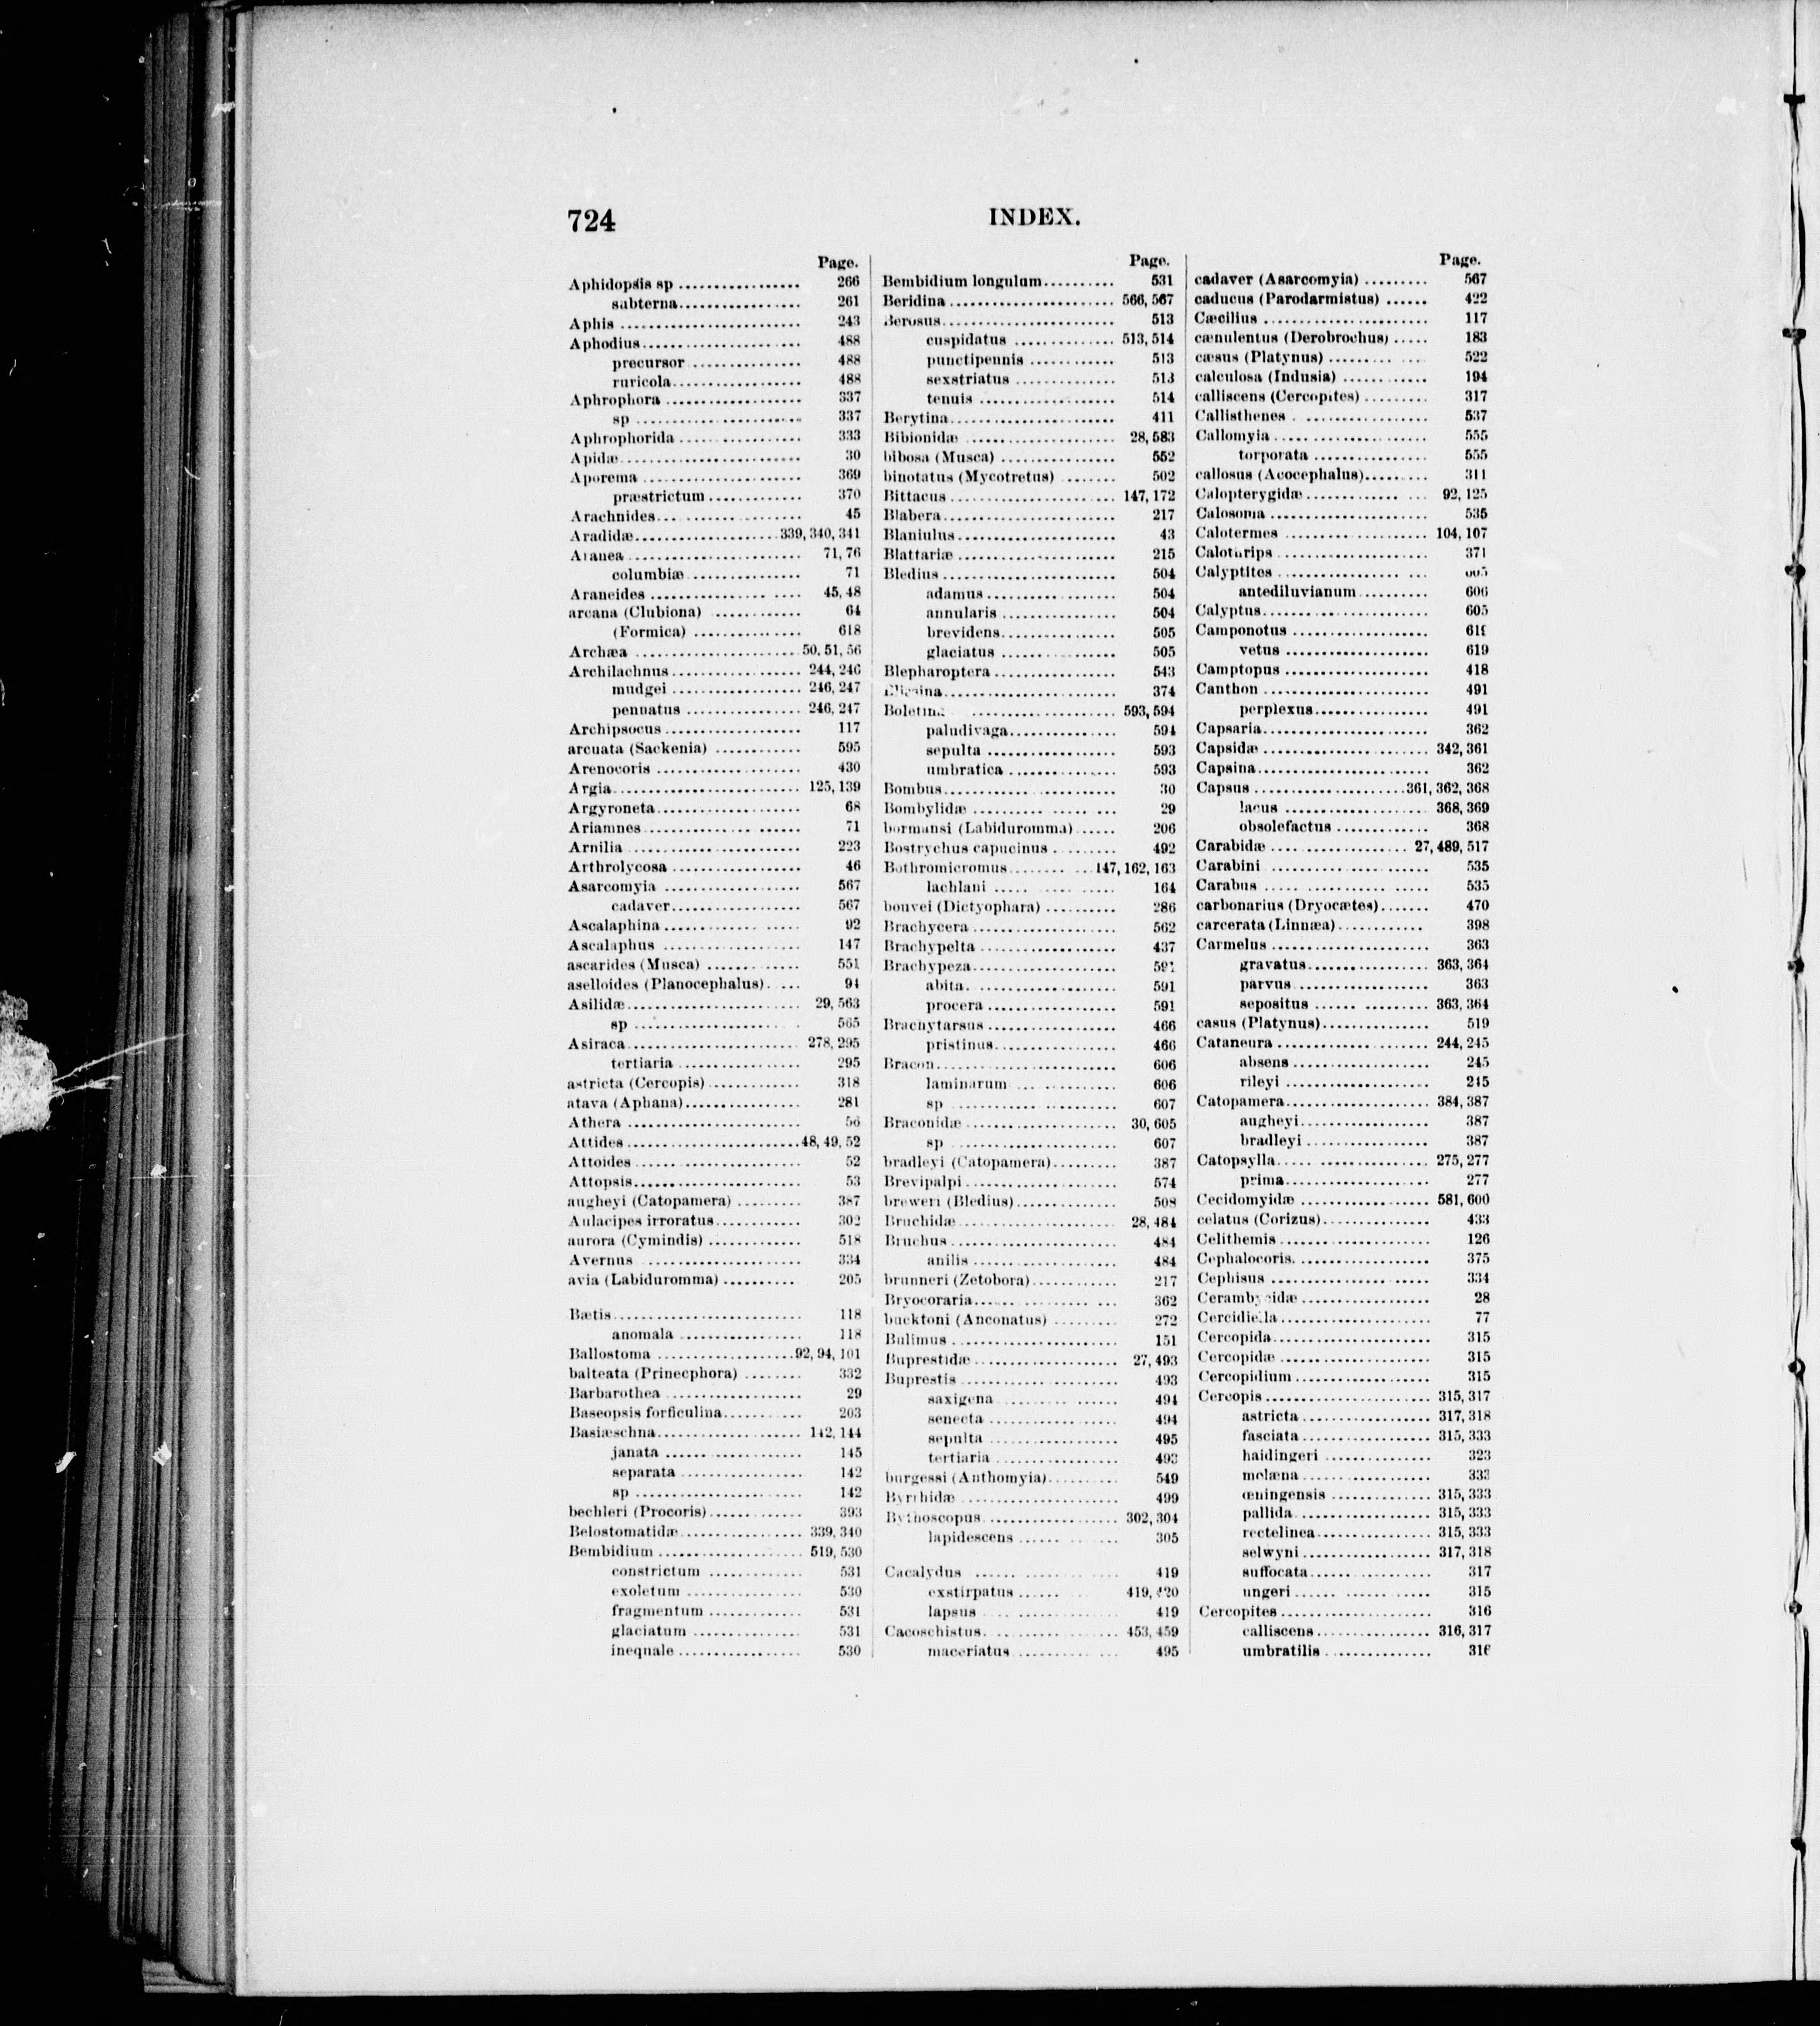 724
INDEX.
Page.
Aphidopsis sp .................. 266
subterna.................. 261
Aphis .......................... 243
Aphodius....................... 488
precursor ................ 488
ruricola................... 488
Aphrophora .................... 337
sp ........................ 337
Aphrophorida .................. 333
Apidæ.......................... 30
Aporema ....................... 369
præstrictum ............. 370
Arachnides..................... 45
Aradidæ.................... 339, 340, 341
Aranea ......................... 71, 76
columbiæ ................ 71
Araneides ...................... 45, 48
arcana (Clubiona) ............. 64
(Formica) ................ 618
Archæa ....................... 50, 51, 56
Archilachnus................... 244, 246
mudgei ................... 246, 247
pennatus ................. 246, 247
Archipsocus.................... 117
arcuata (Sackenia) ............ 595
Arenocoris ..................... 430
Argia........................... 125, 139
Argyroneta..................... 68
Ariamnes....................... 71
Arnilia ......................... 223
Arthrolycosa ................... 46
Asarcomyia .................... 567
cadaver................... 567
Ascalaphina.................... 92
Ascalaphus .................... 147
ascarides (Musca) ............. 551
aselloides (Planocephalus)..... 94
Asilidæ......................... 29, 563
sp ........................ 565
Asiraca......................... 278, 295
tertiaria .................. 295
astricta (Cercopis)............. 318
atava (Aphana)................. 281
Athera ......................... 56
Attides......................... 48, 49, 52
Attoides........................ 52
Attopsis........................ 53
augheyi (Catopamera) ......... 387
Aulacipes irroratus............. 302
aurora (Cymindis) ............. 518
Avernus ....................... 334
avia (Labiduromma) .......... 205
Bætis........................... 118
anomala .................. 118
Ballostoma .................... 92, 94, 101
balteata (Prinecphora) ........ 332
Barbarothea .................... 29
Baseopsis forficulina........... 203
Basiæschna..................... 142, 144
janata .................... 145
separata .................. 142
sp ........................ 142
bechleri (Procoris)............. 393
Belostomatidæ.................. 339, 340
Bembidium ..................... 519, 530
constrictum .............. 531
exoletum ................. 530
fragmentum ............. 531
glaciatum ................ 531
inequale .................. 530
Page.
Bembidium longulum.......... 531
Beridina ........................ 566, 567
Berosus......................... 513
cuspidatus ............... 513, 514
punctipennis ............ 513
sexstriatus .............. 513
tenuis .................... 514
Berytina........................ 411
Bibionidæ ..................... 28, 583
bibosa (Musca) ................ 552
binotatus (Mycotretus) ........ 502
Bittacus ........................ 147, 172
Blabera......................... 217
Blaniulus....................... 43
Blattariæ ....................... 215
Bledius ......................... 504
adamus................... 504
annularis ................ 504
brevidens................. 505
glaciatus ................. 505
Blepharoptera.................. 543
374
Boletina ..................... 593, 594
paludivaga............... 594
sepulta ................... 593
umbratica ................ 593
Bombus......................... 30
Bombylidæ ..................... 29
bormansi (Labiduromma) ...... 206
Bostrychus capucinus .......... 492
Bothromicromus............ 147, 162, 163
lachlani .................. 164
bouvei (Dictyophara) .......... 286
Brachycera ..................... 562
Brachypelta .................... 437
Brachypeza..................... 591
abita...................... 591
procera ................... 591
Brachytarsus ................... 466
pristinus.................. 466
Bracon.......................... 606
laminarum ............... 606
sp ........................ 607
Braconidæ ...................... 30, 605
sp ........................ 607
bradleyi (Catopamera)......... 387
Brevipalpi ...................... 574
breweri (Bledius)............... 508
Bruchidæ....................... 28, 484
Bruchus ........................ 484
anilis ..................... 484
brunneri (Zetobora)............ 217
Bryocoraria..................... 362
bucktoni (Anconatus) ......... 272
Bulimus ........................ 151
Buprestidæ ..................... 27, 493
Buprestis ....................... 493
saxigena ................. 494
senecta ................... 494
sepulta ................... 495
tertiaria .................. 493
burgessi (Anthomyia).......... 549
Byrrhidæ ....................... 499
Bythoscopus.................... 302, 304
lapidescens .............. 305
Cacalydus ..................... 419
exstirpatus .............. 419, 420
lapsus .................... 419
Cacoschistus.................... 453, 459
maceriatus ............... 495
Page.
cadaver (Asarcomyia) ......... 567
caducus (Parodarmistus) ...... 422
Cæcilius ........................ 117
cænulentus (Derobrochus) ..... 183
cæsus (Platynus) .............. 522
calculosa (Indusia) ............ 194
calliscens (Cercopites) ......... 317
Callisthenes .................... 537
Callomyia ...................... 555
torporata ................ 555
callosus (Acocephalus)......... 311
Calopterygidæ.................. 92, 125
Calosoma ....................... 535
Calotermes ..................... 104, 107
Calothrips ...................... 371
Calyptites ...................... 605
antediluvianum .......... 606
Calyptus........................ 605
Camponotus .................... 619
vetus ..................... 619
Camptopus ..................... 418
Canthon ........................ 491
perplexus................. 491
Capsaria........................ 362
Capsidæ ........................ 342, 361
Capsina......................... 362
Capsus ...................... 361, 362, 368
lacus ..................... 368, 369
obsolefactus ............. 368
Carabidæ .................... 27, 489, 517
Carabini ....................... 535
Carabus ........................ 535
carbonarius (Dryocætes)....... 470
carcerata (Linnæa)............ 398
Carmelus ....................... 363
gravatus.................. 363, 364
parvus .................... 363
sepositus ................. 363, 364
casus (Platynus)................ 519
Cataneura ...................... 244, 245
absens.................... 245
rileyi ..................... 245
Catopamera..................... 384, 387
augheyi................... 387
bradleyi .................. 387
Catopsylla...................... 275, 277
prima..................... 277
Cecidomyidæ ................... 581, 600
celatus (Corizus)................ 433
Celithemis ...................... 126
Cephalocoris.................... 375
Cephisus ....................... 334
Cerambycidæ ................... 28
Cercidiella...................... 77
Cercopida....................... 315
Cercopidæ ...................... 315
Cercopidium .................... 315
Cercopis ........................ 315, 317
astricta ................... 317, 318
fasciata ................... 315, 333
haidingeri ................ 323
melæna ................... 333
œningensis ............... 315, 333
pallida .................... 315, 333
rectelinea................. 315, 333
selwyni ................... 317, 318
suffocata.................. 317
ungeri .................... 315
Cercopites ...................... 316
calliscens................. 316, 317
umbratilis ................ 316